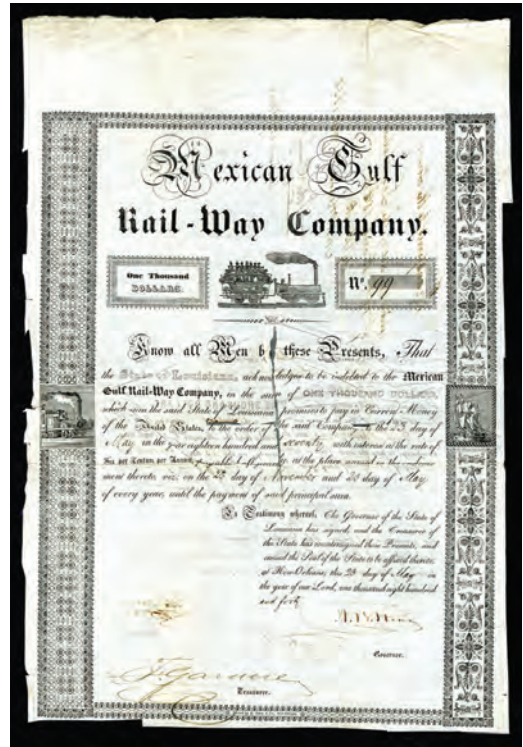 Mexican Gulf
Rail-Way Company.
One Thousand
DOLLARS.
Nº. 99
Know all Men by these Presents, That
the State of Louisiana, acknowledges to be indebted to the Mexican
Gulf Rail-Way Company, in the sum of ONE THOUSAND DOLLARS,
which sum the said State of Louisiana promises to pay in Current Money
of the United States, to the order of the said Company on the 23 day of
May in the year eighteen hundred and seventy, with interest at the rate of
Six per Centum, per Annum, payable half yearly, at the place named in the
ment thereto, viz. on the 23 day of November and 23 day of May
of every year, until the payment of said principal sum.
In Testimony whereof, The Governor of the State of
Louisiana has signed, and the Treasurer of
the State has countersigned these Presents, and
caused the Seal of the State to be affixed thereto,
at New-Orleans, this 23 day of May in
the year of our Lord, one thousand eight hundred
and forty
Governor.
Treasurer.